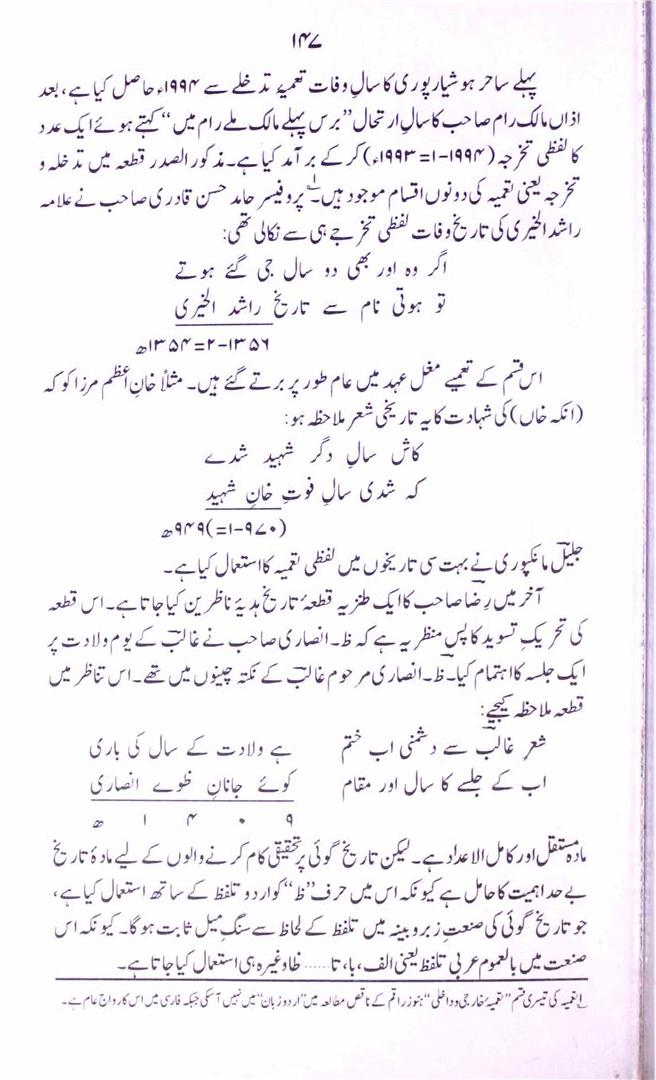 ۱۴۷
پہلے ساحر ہوشیارپوری کا سالِ وفات تعمیۂ تدخلے سے ۱۹۹۴ء حاصل کیا ہے، بعد
اذاں مالک رام صاحب کا سالِ ارتحال ”برس پہلے مالک ملے رام میں“ کہتے ہوئے ایک عدد
کا لفظی تخرجہ (۱۹۹۴-۱=۱۹۹۳ء) کر کے برآمد کیا ہے۔ مذکور الصدر قطعہ میں تدخلہ و
تخرجہ یعنی تعمیہ کی دونوں اقسام موجود ہیں۔۱ پروفیسر حامد حسن قادری صاحب نے علامہ
راشد الخیری کی تاریخ وفات لفظی تخرجے ہی سے نکالی تھی:
اگر وہ اور بھی دو سال جی گئے ہوتے
تو ہوتی نام سے تاریخ راشد الخیری
۱۳۵۶-۲=۱۳۵۴ھ
اس قسم کے تعمیے مغل عہد میں عام طور پر برتے گئے ہیں۔ مثلاً خانِ اعظم مرزا کو کہ
(انکہ خاں) کی شہادت کا یہ تاریخی شعر ملاحظہ ہو:
کاش سالِ دگر شہید شدے
کہ شدی سالِ فوتِ خانِ شہید
(۹۷۰-۱=)۹۴۹ھ
جلیلؔ مانکپوری نے بہت سی تاریخوں میں لفظی تعمیہ کا استعمال کیا ہے۔
آخر میں رضاؔ صاحب کا ایک طنزیہ قطعۂ تاریخ ہدیۂ ناظرین کیا جاتا ہے۔ اس قطعہ
کی تحریکِ تسوید کا پس منظر یہ ہے کہ ظ۔ انصاری صاحب نے غالبؔ کے یومِ ولادت پر
ایک جلسہ کا اہتمام کیا۔ ظ۔ انصاری مرحوم غالبؔ کے نکتہ چینوں میں تھے۔ اس تناظر میں
قطعہ ملاحظہ کیجیے:
شعرِ غالبؔ سے دشمنی اب ختم ہے ولادت کے سال کی باری
اب کے جلسے کا سال اور مقام کوئے جانانِ ظوے انصاری
۹ ۰ ۴ ۱ ھ
مادہ مستقل اور کامل الاعداد ہے۔ لیکن تاریخ گوئی پر تحقیقی کام کرنے والوں کے لیے مادۂ تاریخ
بے حد اہمیت کا حامل ہے کیونکہ اس میں حرف ”ظ“ کو اردو تلفظ کے ساتھ استعمال کیا ہے،
جو تاریخ گوئی کی صنعتِ زبر و بینہ میں تلفظ کے لحاظ سے سنگِ میل ثابت ہوگا۔ کیونکہ اس
صنعت میں بالعموم عربی تلفظ یعنی الف، با، تا...... ظا وغیرہ ہی استعمال کیا جاتا ہے۔
۱ تعمیہ کی تیسری قسم ”تعمیۂ خارجی و داخلی“ ہنوز راقم کے ناقص مطالعہ میں ”اردو زبان“ میں نہیں آسکی جبکہ فارسی میں اس کا رواج عام ہے۔